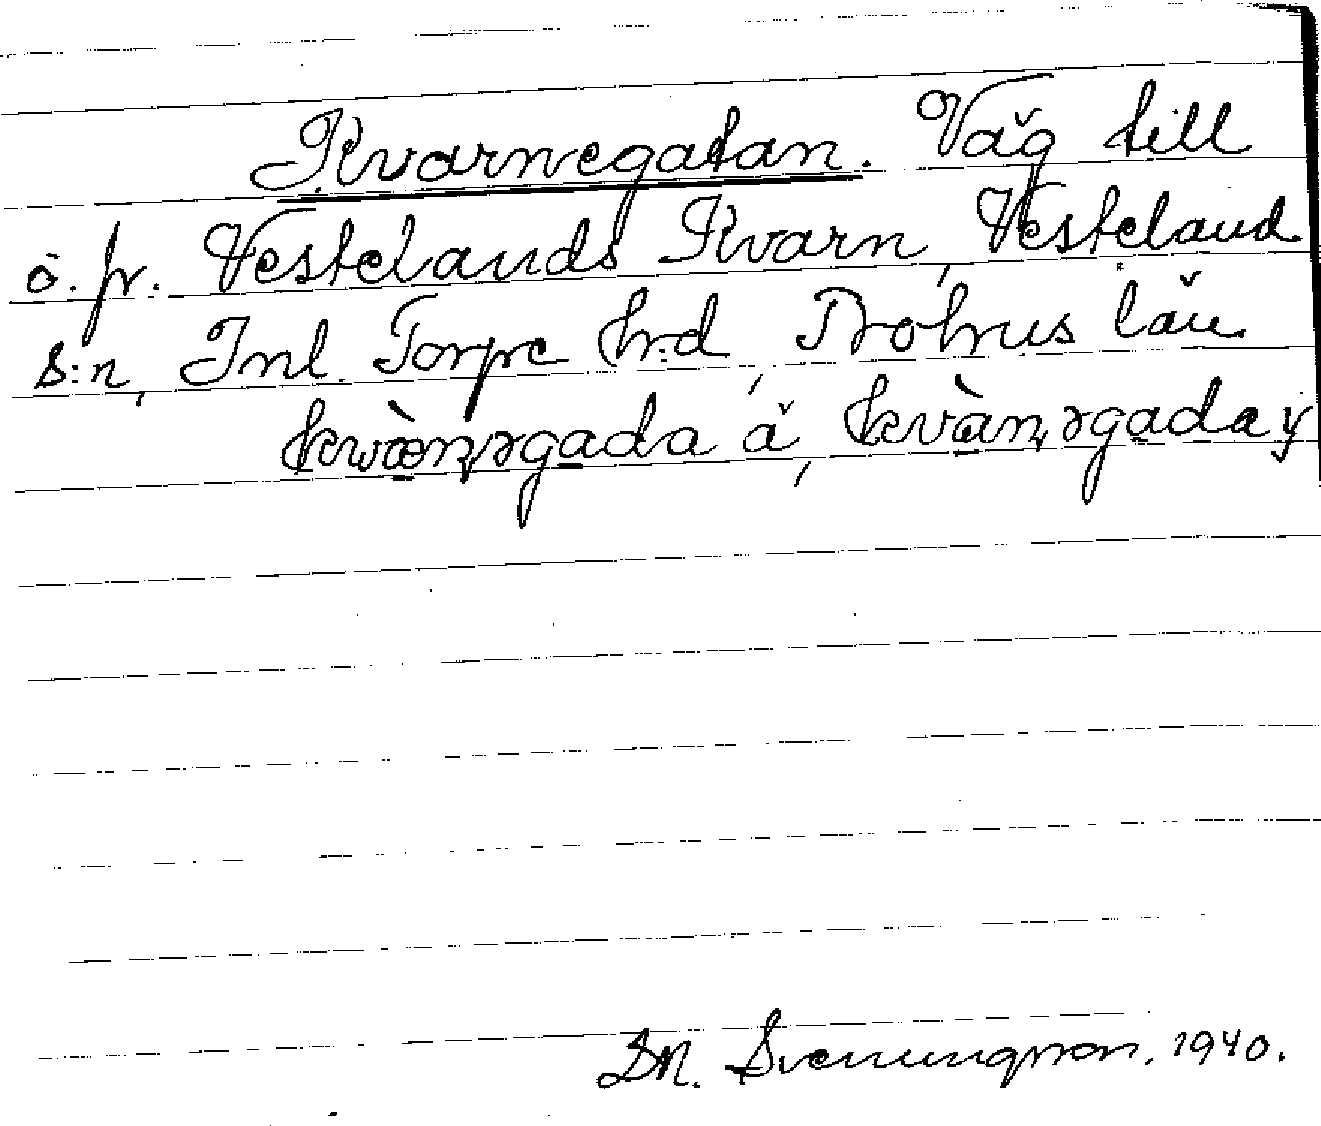 Kvarnegatan. Väg till
ö. fr. Vestelands Kvarn, Vesteland
s:n, Inl. Torpe hrd, Bohus län
kwæ̀nəgada å, kvànəgaday
Svenungsson, 1940.